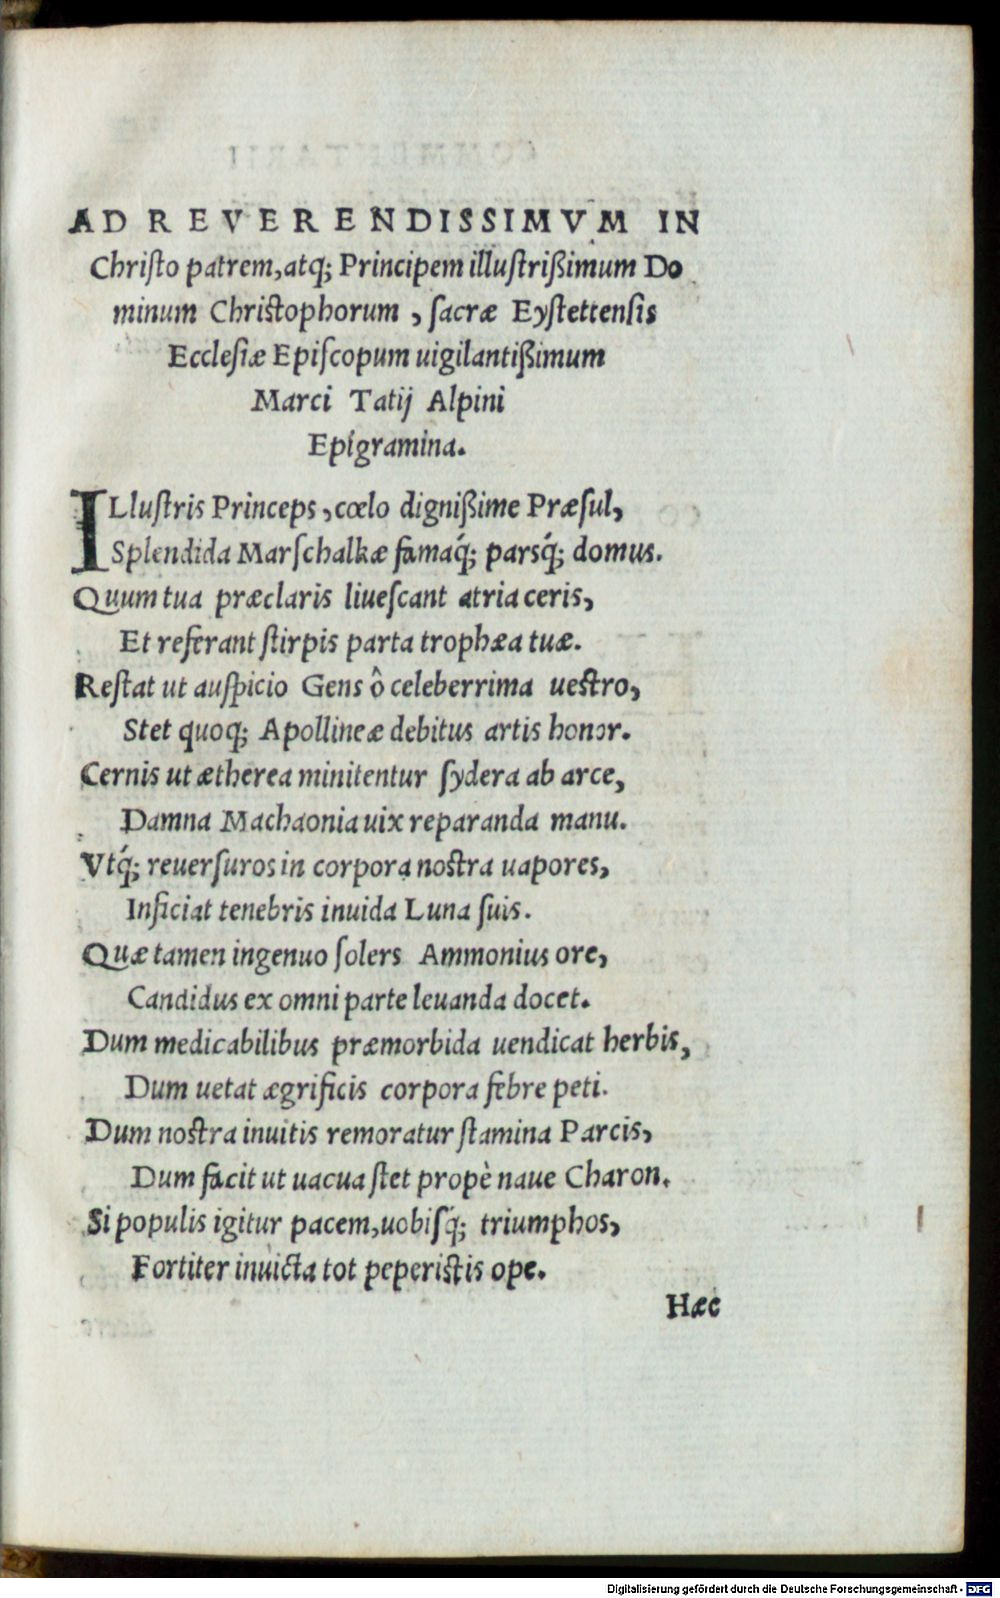 AD REVERENDISSIMVM IN
Chriſto patrem, atq; Principem illuſtrißimum Do
minum Chriſtophorum , ſacræ Eyſtettenſis
Eccleſiæ Epiſcopum uigilantißimum
Marci Tatij Alpini
Epigramina.
ILluſtris Princeps, cœlo dignißime Præſul,
Splendida Marſchalkæ famaq́; parsq́; domus.
Quum tua præclaris liueſcant atria ceris,
Et referant ſtirpis parta trophæa tuæ.
Reſtat ut auſpicio Gens ô celeberrima ueſtro,
Stet quoq; Apollineæ debitus artis honor.
Cernis ut ætherea minitentur ſydera ab arce,
Damna Machaonia uix reparanda manu.
Vtq́; reuerſuros in corpora noſtra uapores,
Inficiat tenebris inuida Luna ſuis.
Quæ tamen ingenuo ſolers Ammonius ore,
Candidus ex omni parte leuanda docet.
Dum medicabilibus præmorbida uendicat herbis,
Dum uetat ægrificis corpora febre peti.
Dum noſtra inuitis remoratur ſtamina Parcis,
Dum facit ut uacua ſtet propè naue Charon.
Si populis igitur pacem, uobiſq́; triumphos,
Fortiter inuicta tot peperiſtis ope.
Hæc
Digitalisierung gefördert durch die Deutsche Forschungsgemeinschaft - DFG